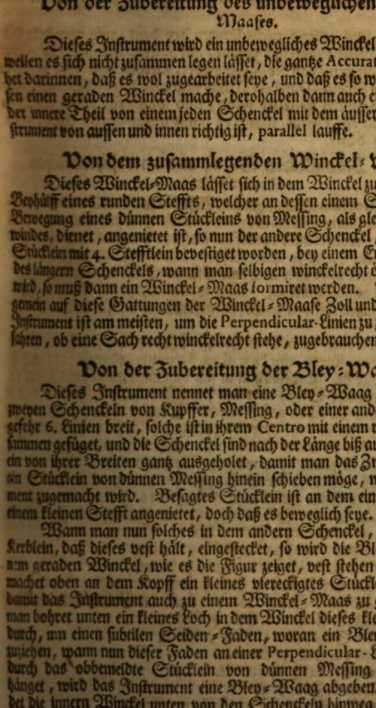 Von der Zubereitung des unbeweglichen
Maases.
Dieses Instrument wird ein unbewegliches Winckel
weilen es sich nicht zusammen legen lässet, die gantze Accurat
het darinnen, daß es wol zugearbeitet seye, und daß es so w
sen einen geraden Winckel mache, derohalben dann auch
der innere Theil von einem jeden Schenckel mit dem äusser
strument von aussen und innen richtig ist, parallel lauffe.
Von dem zusammlegenden Winckel-
Dieses Winckel-Maas lässet sich in dem Winckel zu
Behüff eines runden Steffts, welcher an dessen einem S
Bewegung eines dünnen Stückleins von Messing, als gle
windes, dienet, angenietet ist, so nun der andere Schenckel
Stücklein mit 4. Stefftlein bevestiget worden, bey einem E
des längern Schenckels, wann man selbigen winckelrecht
wird, so muß dann ein Winckel-Maas formiret werden.
gemein auf diese Gattungen der Winckel-Maase Zoll und
Instrument ist am meisten, um die Perpendicular-Linien zu
fahren, ob eine Sach recht winckelrecht stehe, zugebrauchen
Von der Zubereitung der Bley-Wa
Dieses Instrument nennet man eine Bley-Waag
zweyen Schenckeln von Kupffer, Messing, oder einer and
gefehr 6. Linien breit, solche ist in ihrem Centro mit einem
sammen gefüget, und die Schenckel sind nach der Länge biß au
ein von ihrer Breiten gantz ausgeholet, damit man das Zu
Stücklein von dünnen Messing hinein schieben möge,
ment zugemacht wird. Besagtes Stücklein ist an dem ein
einem kleinen Stefft angenietet, doch daß es beweglich seye.
Wann man nun solches in dem andern Schenckel,
Kerblein, daß dieses vest hält, eingestecket, so wird die Bl
geraden Winckel, wie es die Figur zeiget, vest stehen
machet oben an dem Kopff ein kleines viereckigtes Stückl
damit das Instrument auch zu einem Winckel-Maas zu
man bohret unten ein kleines Loch in dem Winckel dieses kle
durch, um einen subtilen Seiden-Faden, woran ein Ble
zuziehen, wann nun dieser Faden an einer Perpendicular-L
durch das obbemeldte Stücklein von dünnen Messing
hänget, wird das Instrument eine Bley-Waag abgeben
die innern Winckel unten von den Schenckeln hinweg